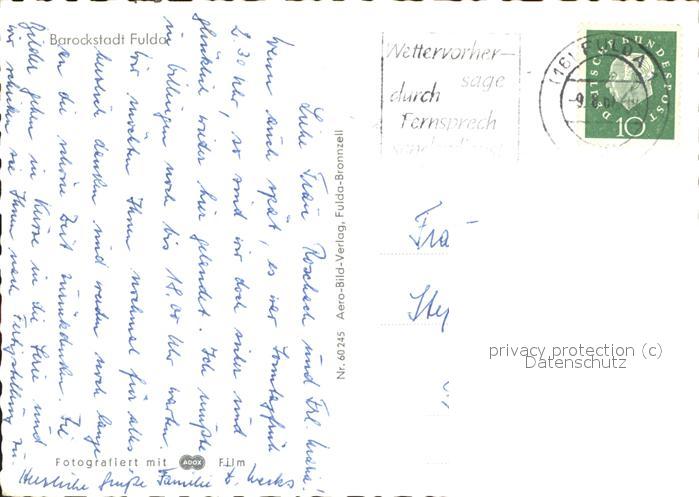 Barockstadt Fulda
Liebe Frau Roschach und Frl. Maria!
Wenn auch spät, es war Sonntagfrüh
2.30 Uhr, so sind wir doch sicher und
glücklich wieder hier gelandet. Ich mußte
in Villingen noch bis 18.00 Uhr warten.
Wir möchten Ihnen nochmal für alles
herzlich danken und werden noch lange
an die schöne Zeit zurückdenken. Die
Bilder gehen in Kürze in die Serie und
wir schicken sie Ihnen nach Fertigstellung zu.
Herzliche Grüße Familie
Fotografiert mit ADOX Film
Nr. 60245 Aero-Bild-Verlag, Fulda-Bronnzell
Wettervorher-
sage
durch
Fernsprech
(16) FULDA
DEUTSCHE BUNDESPOST
10
Frä
privacy protection (c)
Datenschutz